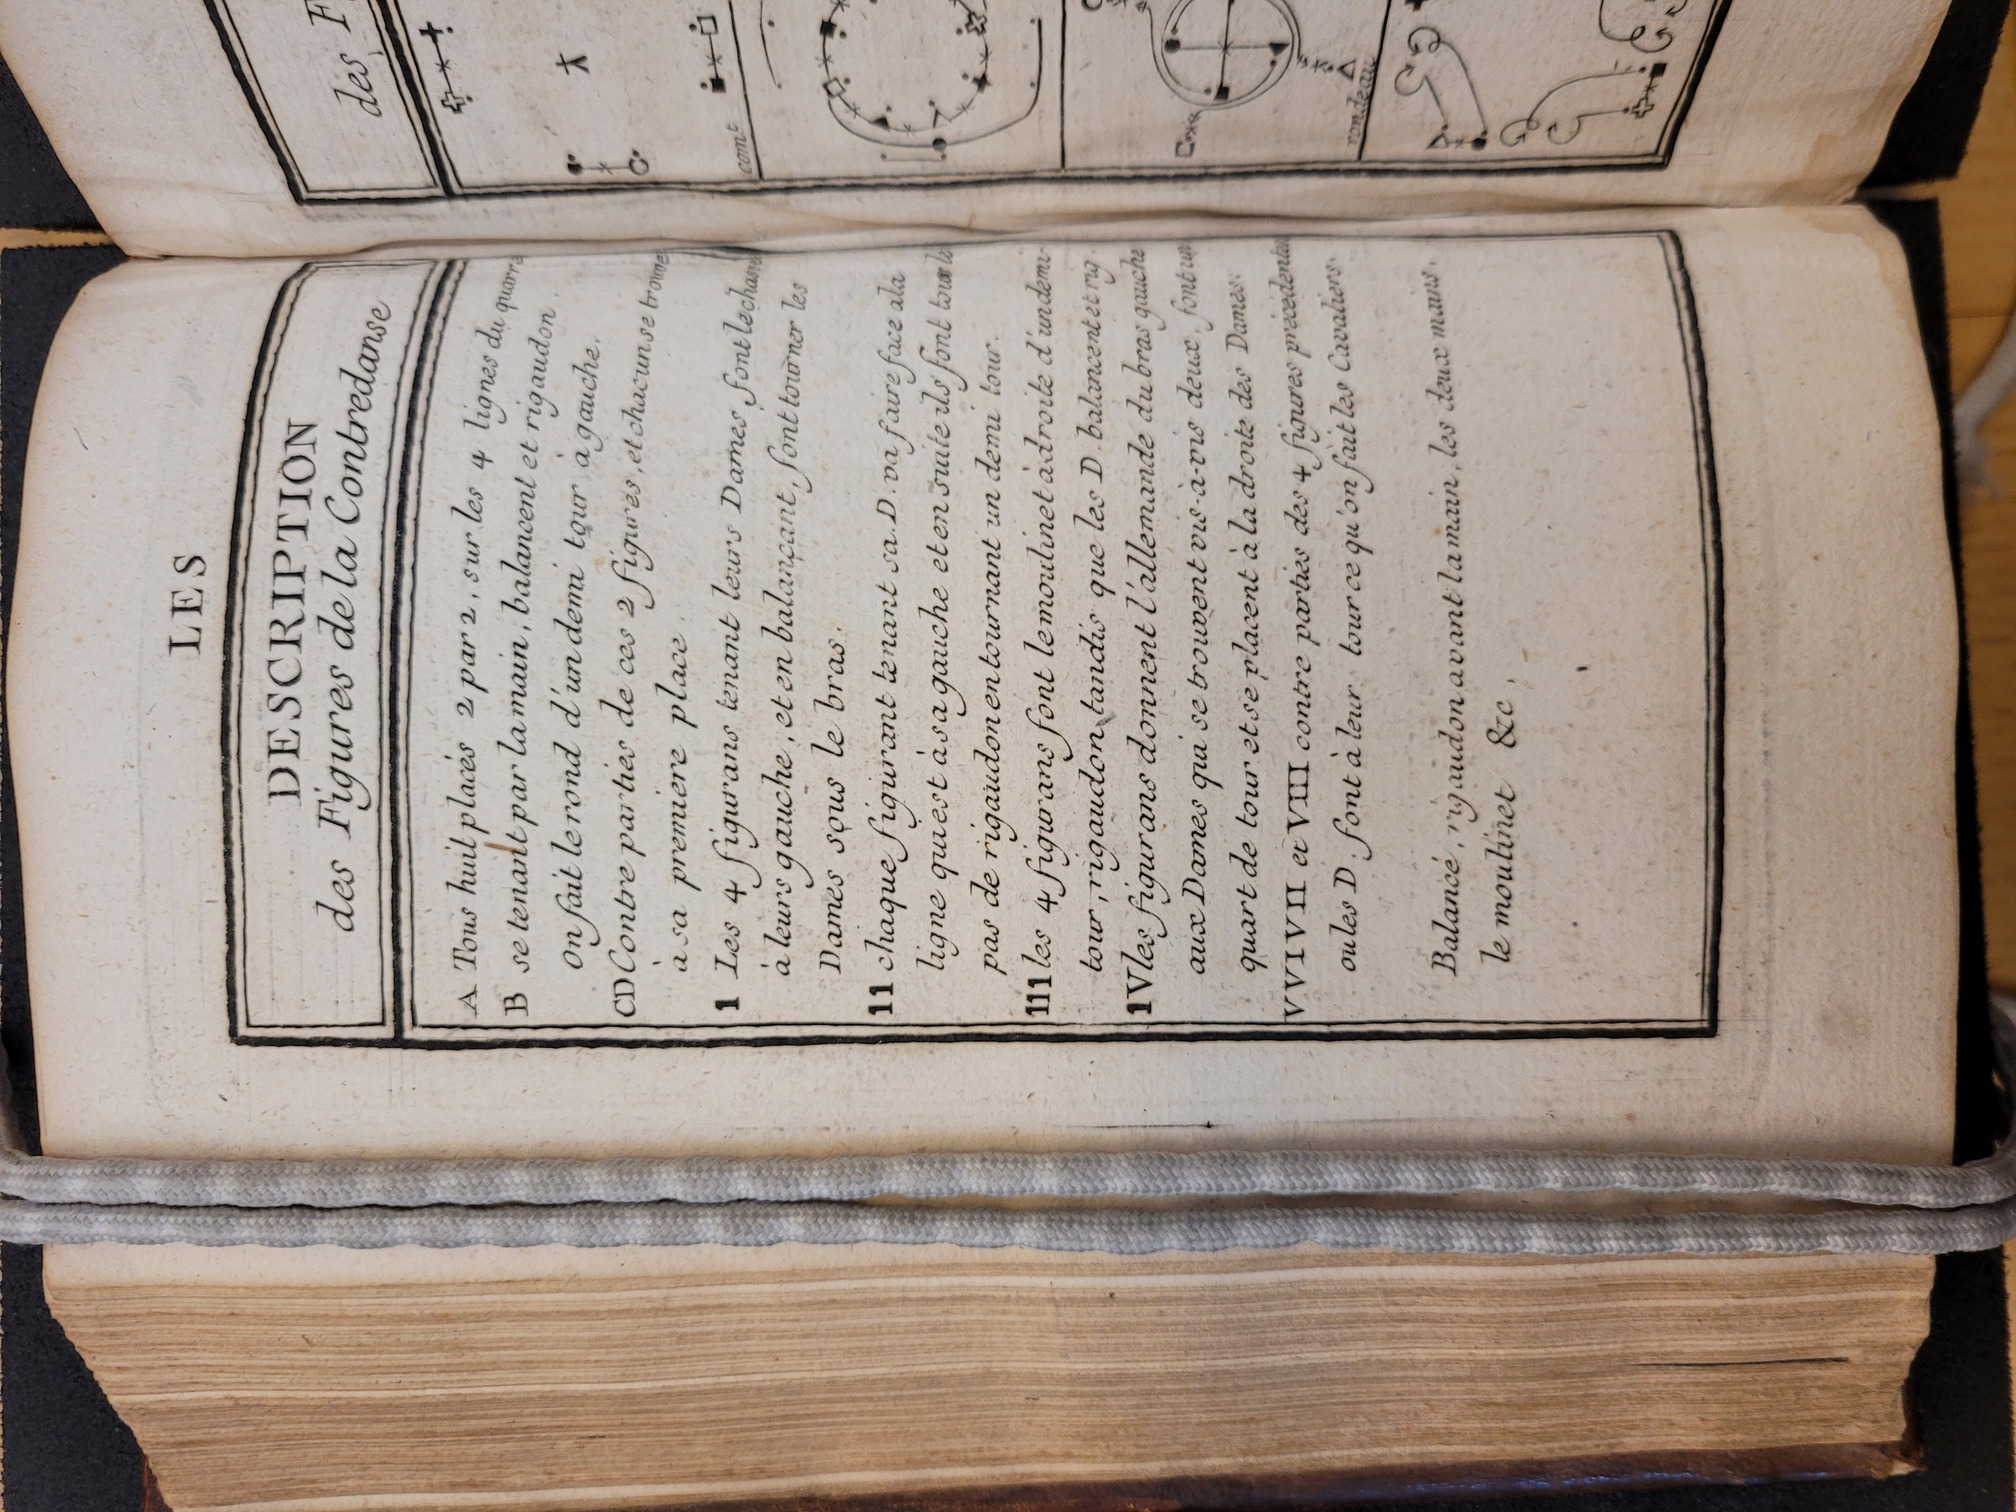 LES
DESCRIPTION
des Figures de la Contredanse
A Tous huit placés 2 par 2, sur les 4 lignes du quarré
B se tenant par la main, balancent et rigaudon
on fait le rond d'un demi tour à gauche.
CD Contre parties de ces 2 figures, et chacun se trouve
à sa premiere place.
I Les 4 figurans tenant leurs Dames font le chassé
à leurs gauche, et en balançant, font tourner les
Dames sous le bras.
II chaque figurant tenant sa D. va faire face a la
ligne qui est à sa gauche et en suite ils font tous le
pas de rigaudon en tournant un demi tour.
III les 4 figurans font le moulinet à droite d'un demi-
tour, rigaudon, tandis que les D. balancent et rig.
IV les figurans donnent l'allemande du bras gauche
aux Dames qui se trouvent vis-à-vis deux, font un
quart de tour et se placent à la droite des Dames.
V VI VII et VIII contre parties des 4 figures précédentes
ou les D. font à leur tour ce qu'on fait les Cavaliers.
Balancé, rigaudon avant la main, les deux mains,
le moulinet &c.
des F
cont
rondeau